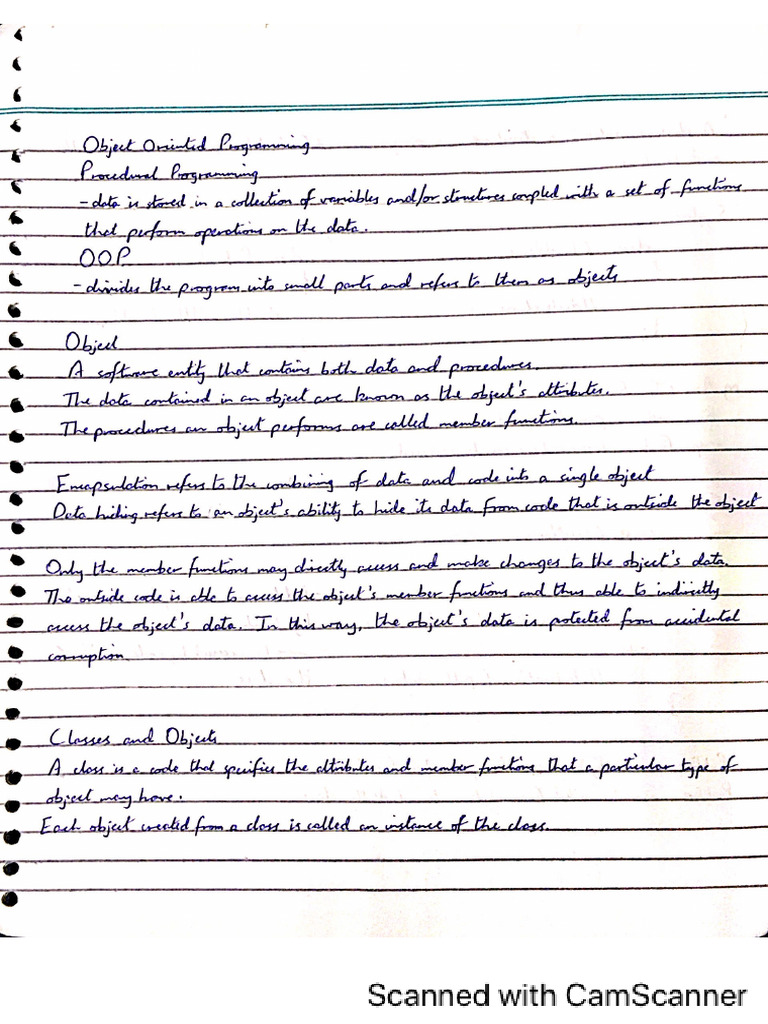 Object Oriented Programming
Procedural Programming
- data is stored in a collection of variables and/or structures coupled with a set of functions
that perform operations on the data.
OOP
- divides the program into small parts and refers to them as objects
Object
A software entity that contains both data and procedures.
The data contained in an object are known as the object's attributes.
The procedures an object performs are called member functions.
Encapsulation refers to the combining of data and code into a single object
Data hiding refers to an object's ability to hide its data from code that is outside the object
Only the member functions may directly access and make changes to the object's data.
The outside code is able to access the object's member functions and thus able to indirectly
access the object's data. In this way, the object's data is protected from accidental
corruption.
Classes and Objects
A class is a code that specifies the attributes and member functions that a particular type of
object may have.
Each object created from a class is called an instance of the class.
Scanned with CamScanner